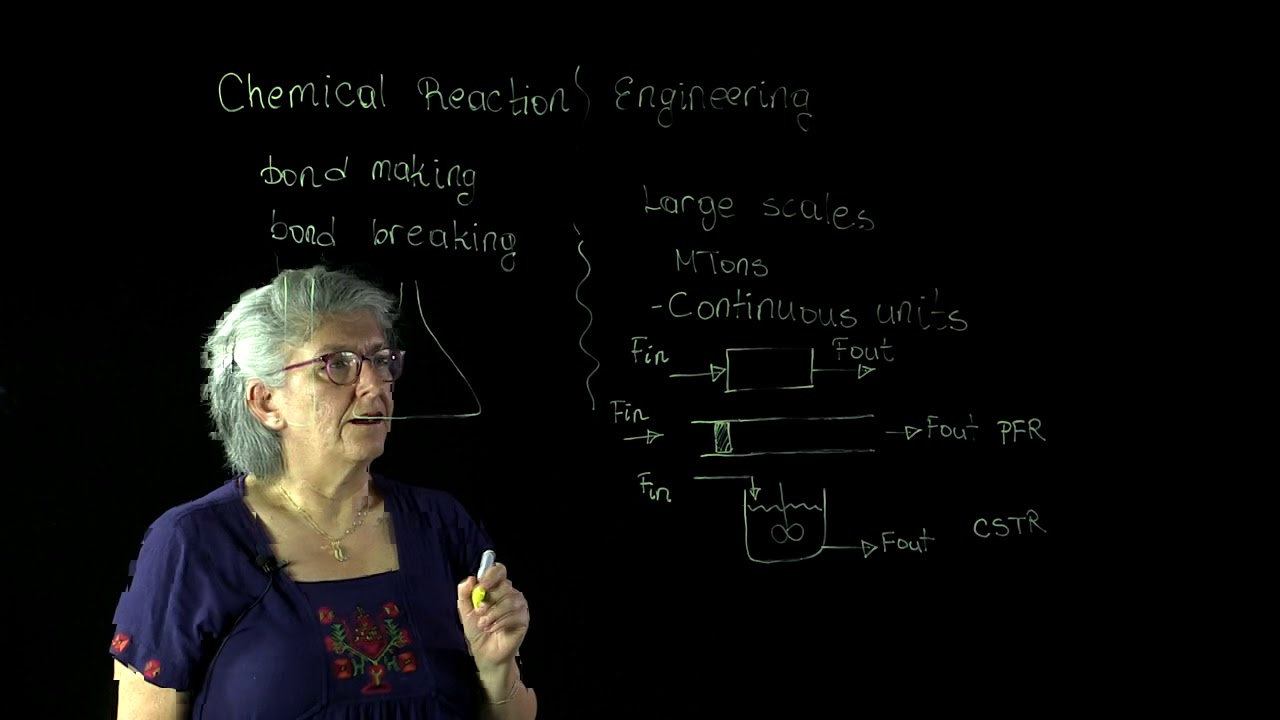 Chemical Reaction Engineering
bond making
bond breaking
Large scales
MTons
-Continuous units
Fin Fout
Fin Fout PFR
Fin
Fout CSTR